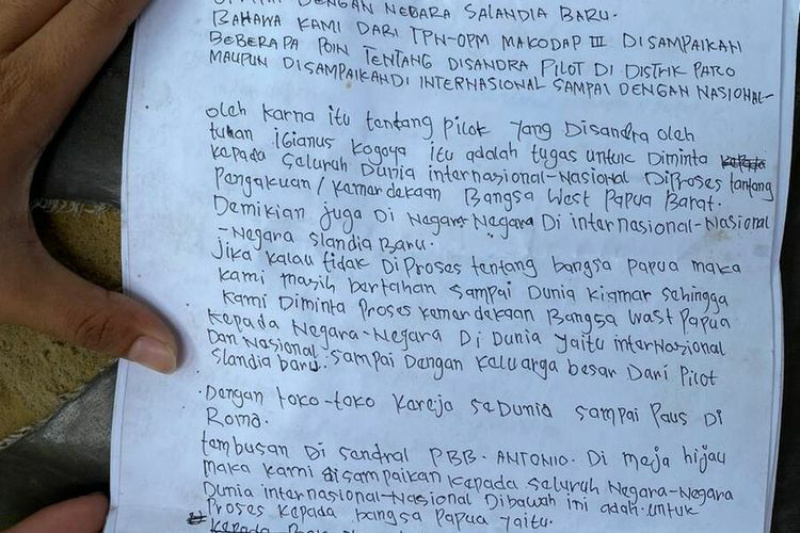 DENGAN NEBARA SALANDIA BARU.
BAHAWA KAMI DARI TPN-OPM MAKODAP III DISAMPAIKAN
BEBERAPA POIN TENTANG DISANDRA PILOT DI DISTRIK PARO
MAUPUN DISAMPAIKANDI INTERNASIONAL SAMPAI DENGAN NASIONAL-
oleh karna itu tentang pilot yang Disandra oleh
tuhan iGianus Kogoya itu adalah tugas untuk Diminta
kepada Seluruh Dunia internasional-Nasional DiProses tantang
Pengakuan/kemardekaan Bangsa West Papua Barat.
Demikian juga Di Negara-Negara Di internasional-Nasional
-Negara slandia Baru.
Jika kalau tidak DiProses tentang bangsa papua maka
kami masih bertahan sampai Dunia kismar sehingga
kami Diminta Proses kemerdekaan Bangsa Wast Papua
kepada Negara-Negara Di Dunia yaitu internasional
Dan Nasional. sampai Dengan keluarga besar Dari Pilot
slandia baru.
Dengan toko-toko kareja seDunia sampai Paus Di
Roma.
tembusan Di sendral PBB. ANTONIO. Di meja hijau
maka kami disampaikan kepada seluruh Negara-Negara
Dunia internasional-Nasional Dibawah ini adah untuk
Proses kepada bangsa Papua yaitu.